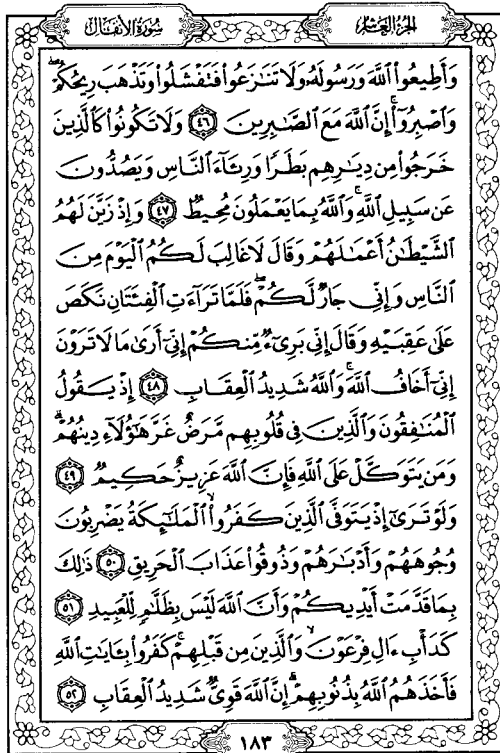 الجزء العاشر
سورة الأنفال
وَأَطِيعُوا۟ ٱللَّهَ وَرَسُولَهُۥ وَلَا تَنَٰزَعُوا۟ فَتَفْشَلُوا۟ وَتَذْهَبَ رِيحُكُمْۖ
وَٱصْبِرُوٓا۟ۚ إِنَّ ٱللَّهَ مَعَ ٱلصَّٰبِرِينَ ٤٦ وَلَا تَكُونُوا۟ كَٱلَّذِينَ
خَرَجُوا۟ مِن دِيَٰرِهِم بَطَرًا وَرِئَآءَ ٱلنَّاسِ وَيَصُدُّونَ
عَن سَبِيلِ ٱللَّهِۚ وَٱللَّهُ بِمَا يَعْمَلُونَ مُحِيطٌ ٤٧ وَإِذْ زَيَّنَ لَهُمُ
ٱلشَّيْطَٰنُ أَعْمَٰلَهُمْ وَقَالَ لَا غَالِبَ لَكُمُ ٱلْيَوْمَ مِنَ
ٱلنَّاسِ وَإِنِّى جَارٌ لَّكُمْۖ فَلَمَّا تَرَآءَتِ ٱلْفِئَتَانِ نَكَصَ
عَلَىٰ عَقِبَيْهِ وَقَالَ إِنِّى بَرِىٓءٌ مِّنكُمْ إِنِّىٓ أَرَىٰ مَا لَا تَرَوْنَ
إِنِّىٓ أَخَافُ ٱللَّهَۚ وَٱللَّهُ شَدِيدُ ٱلْعِقَابِ ٤٨ إِذْ يَقُولُ
ٱلْمُنَٰفِقُونَ وَٱلَّذِينَ فِى قُلُوبِهِم مَّرَضٌ غَرَّ هَٰٓؤُلَآءِ دِينُهُمْۗ
وَمَن يَتَوَكَّلْ عَلَى ٱللَّهِ فَإِنَّ ٱللَّهَ عَزِيزٌ حَكِيمٌ ٤٩
وَلَوْ تَرَىٰٓ إِذْ يَتَوَفَّى ٱلَّذِينَ كَفَرُوا۟ۙ ٱلْمَلَٰٓئِكَةُ يَضْرِبُونَ
وُجُوهَهُمْ وَأَدْبَٰرَهُمْ وَذُوقُوا۟ عَذَابَ ٱلْحَرِيقِ ٥٠ ذَٰلِكَ
بِمَا قَدَّمَتْ أَيْدِيكُمْ وَأَنَّ ٱللَّهَ لَيْسَ بِظَلَّٰمٍ لِّلْعَبِيدِ ٥١
كَدَأْبِ ءَالِ فِرْعَوْنَۙ وَٱلَّذِينَ مِن قَبْلِهِمْۚ كَفَرُوا۟ بِـَٔايَٰتِ ٱللَّهِ
فَأَخَذَهُمُ ٱللَّهُ بِذُنُوبِهِمْۗ إِنَّ ٱللَّهَ قَوِىٌّ شَدِيدُ ٱلْعِقَابِ ٥٢
١٨٣